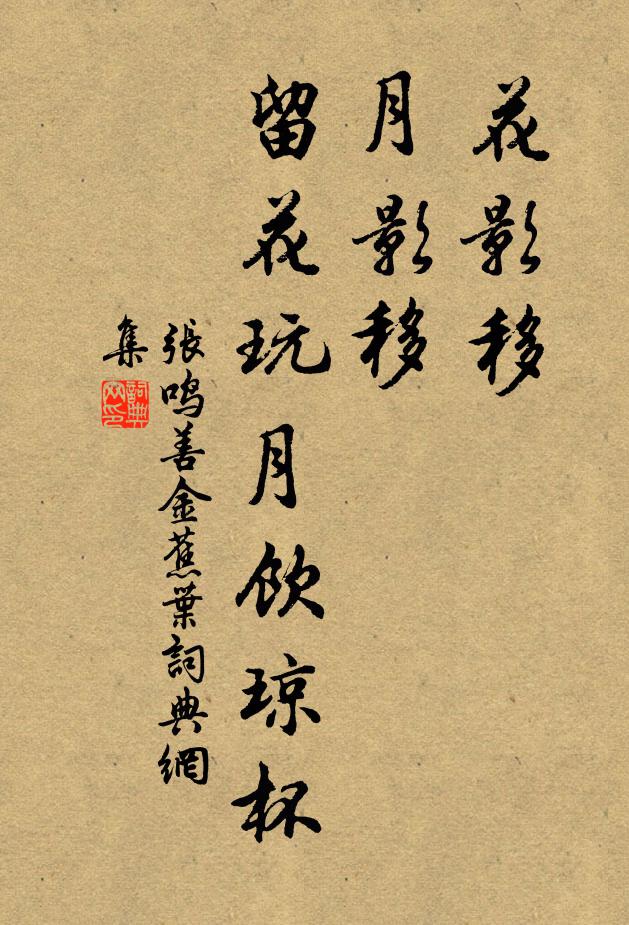 花影移
月影移
留花玩月飲琼杯
張鸣善金蕉葉詞典網
集
詞典
网印